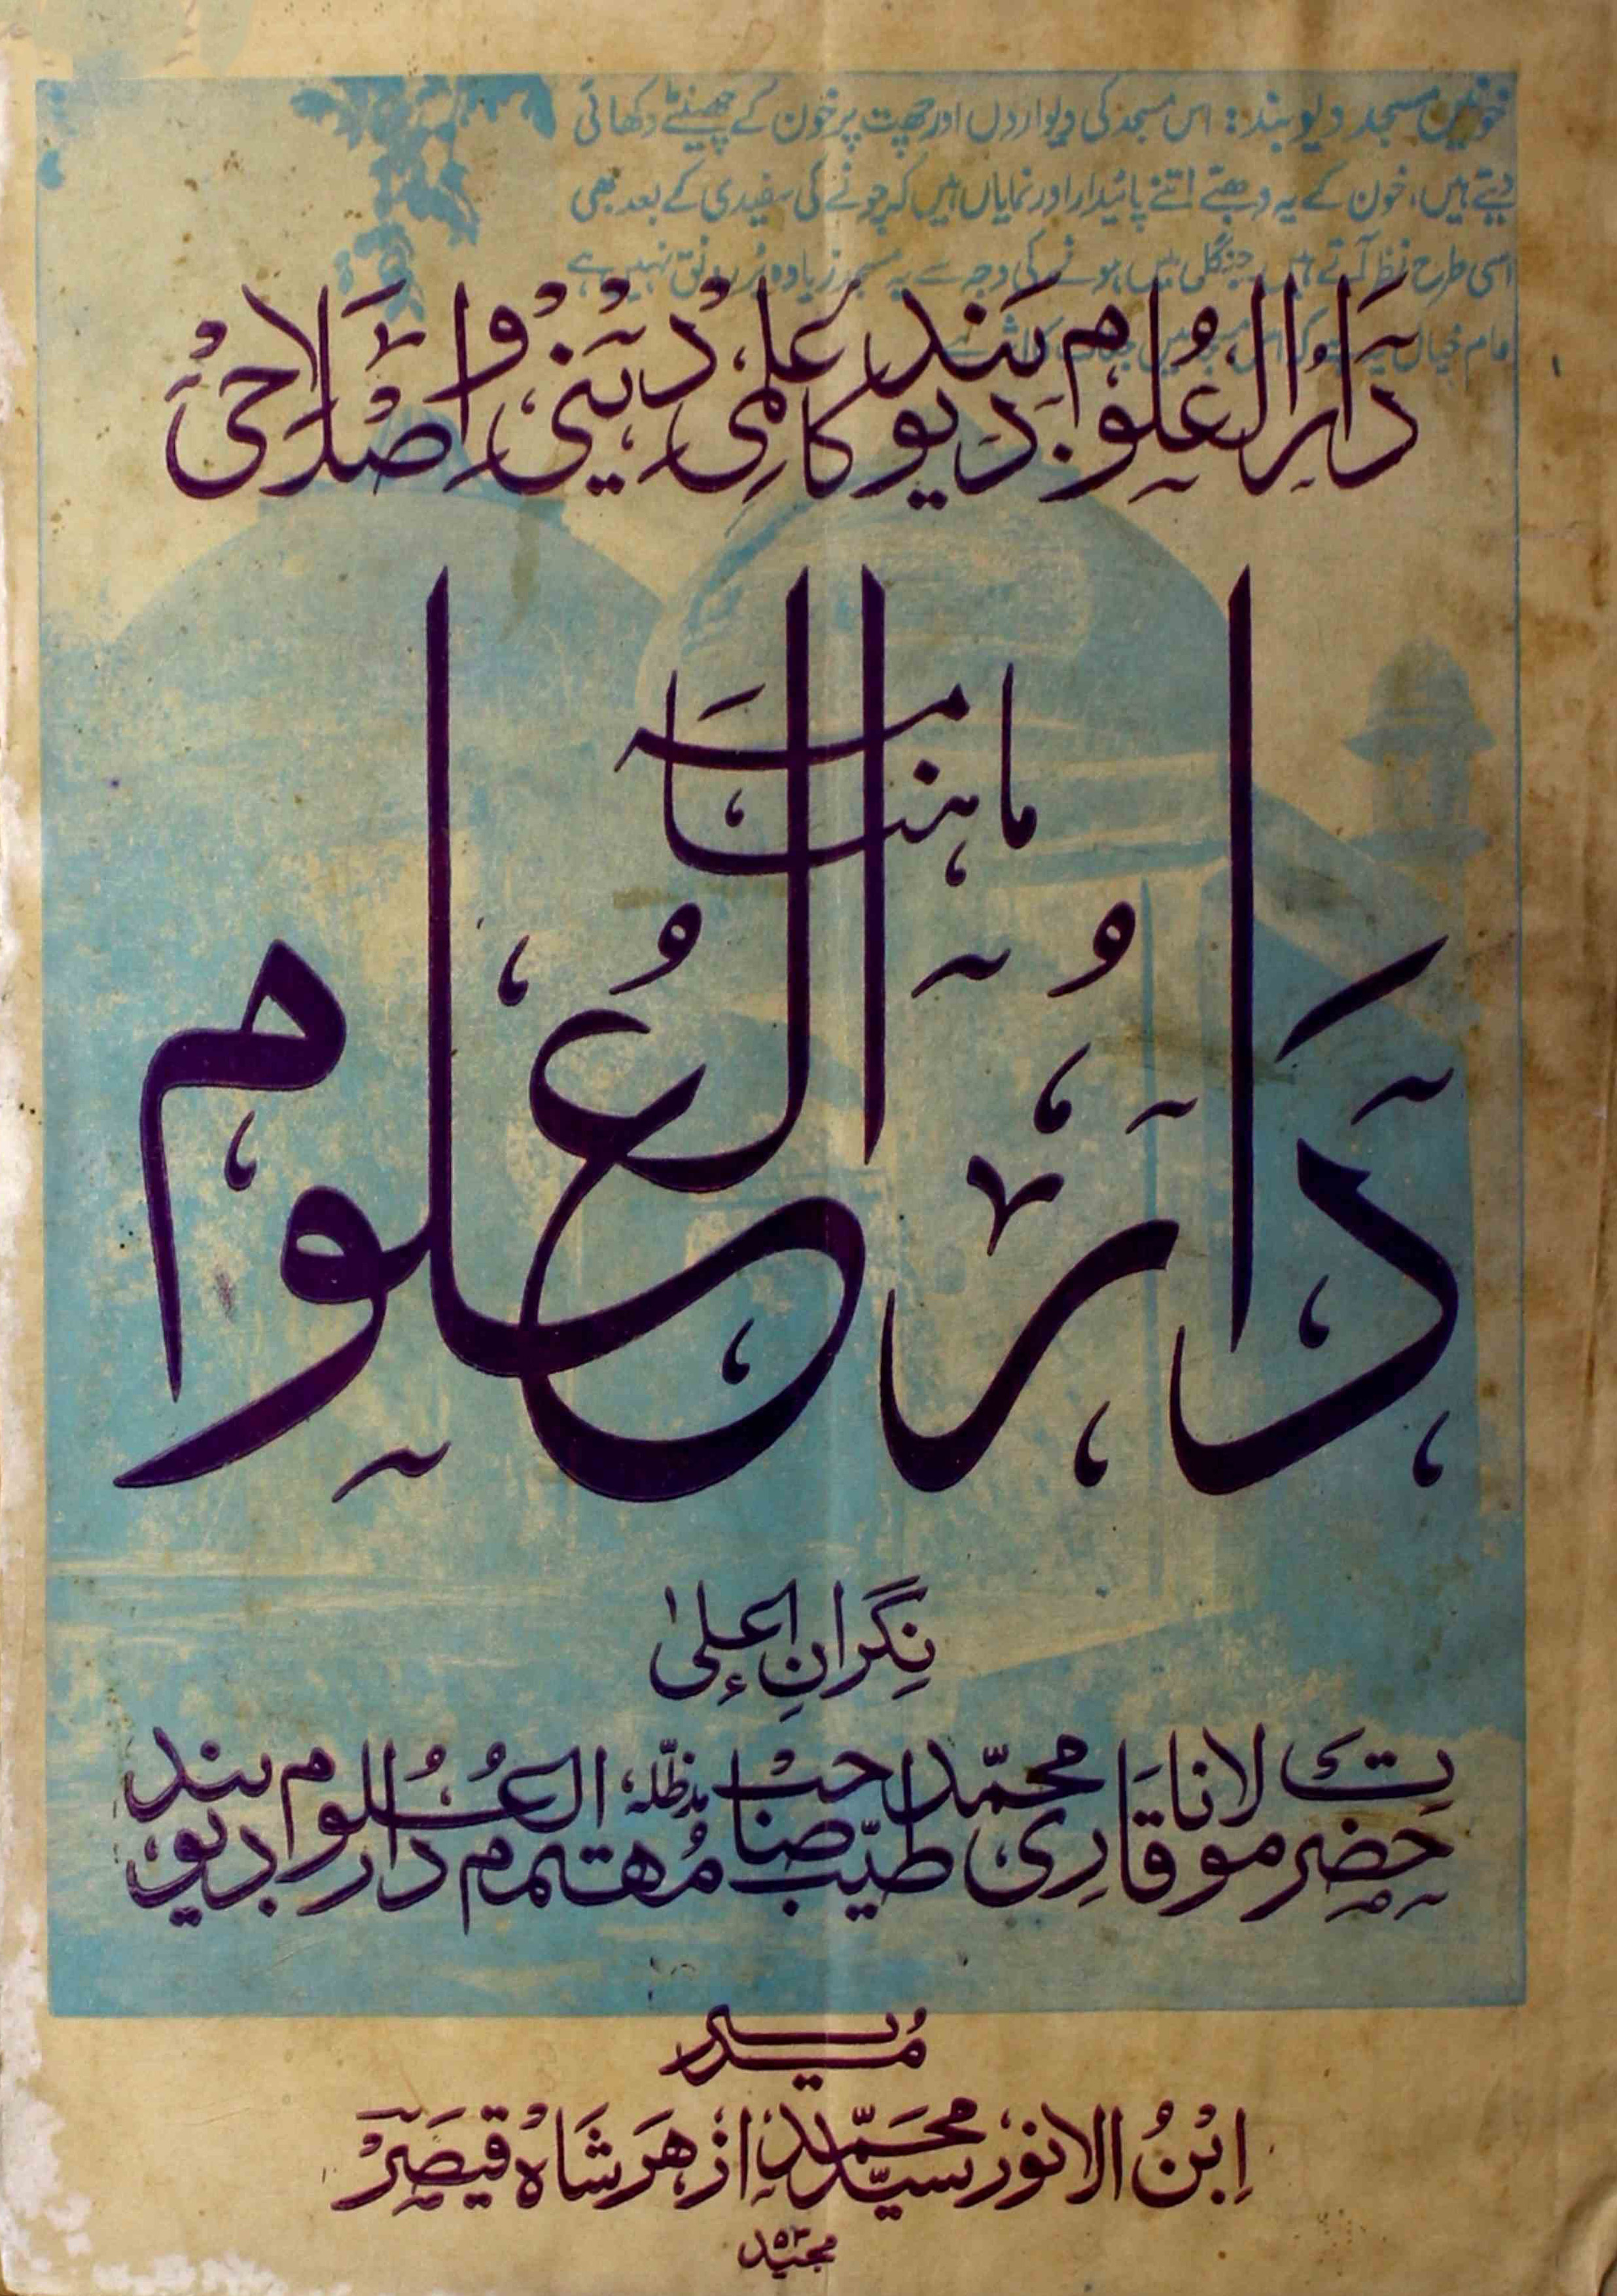 خونیں مسجد دیوبند: اس مسجد کی دیواروں اور چھت پر خون کے چھینٹے دکھائی
دیتے ہیں، خون کے یہ دھبے اتنے پائیدار اور نمایاں ہیں کہ چونے کی سفیدی کے بعد بھی
اسی طرح نظر آتے ہیں جنگل میں ہونے کی وجہ سے یہ مسجد زیادہ پُر رونق نہیں ہے
عام خیال یہ ہے کہ اس مسجد میں جنات کا اثر ہے
دَارُالعُلُوم دیوبَند کا عِلمی دِینی و اِصْلاحیْ
ماہنامہ
دَارُالعُلوم
نِگرانِ اعلیٰ
حضرت مولانا قاری محمّد طیّب صاحبْ مدظلّہ مُہتمم دارالعُلوم دیوبند
مُدیر
اِبْنُ الانور سیّد محمّد ازہر شاہ قیصَرْ
مجید ۵۳